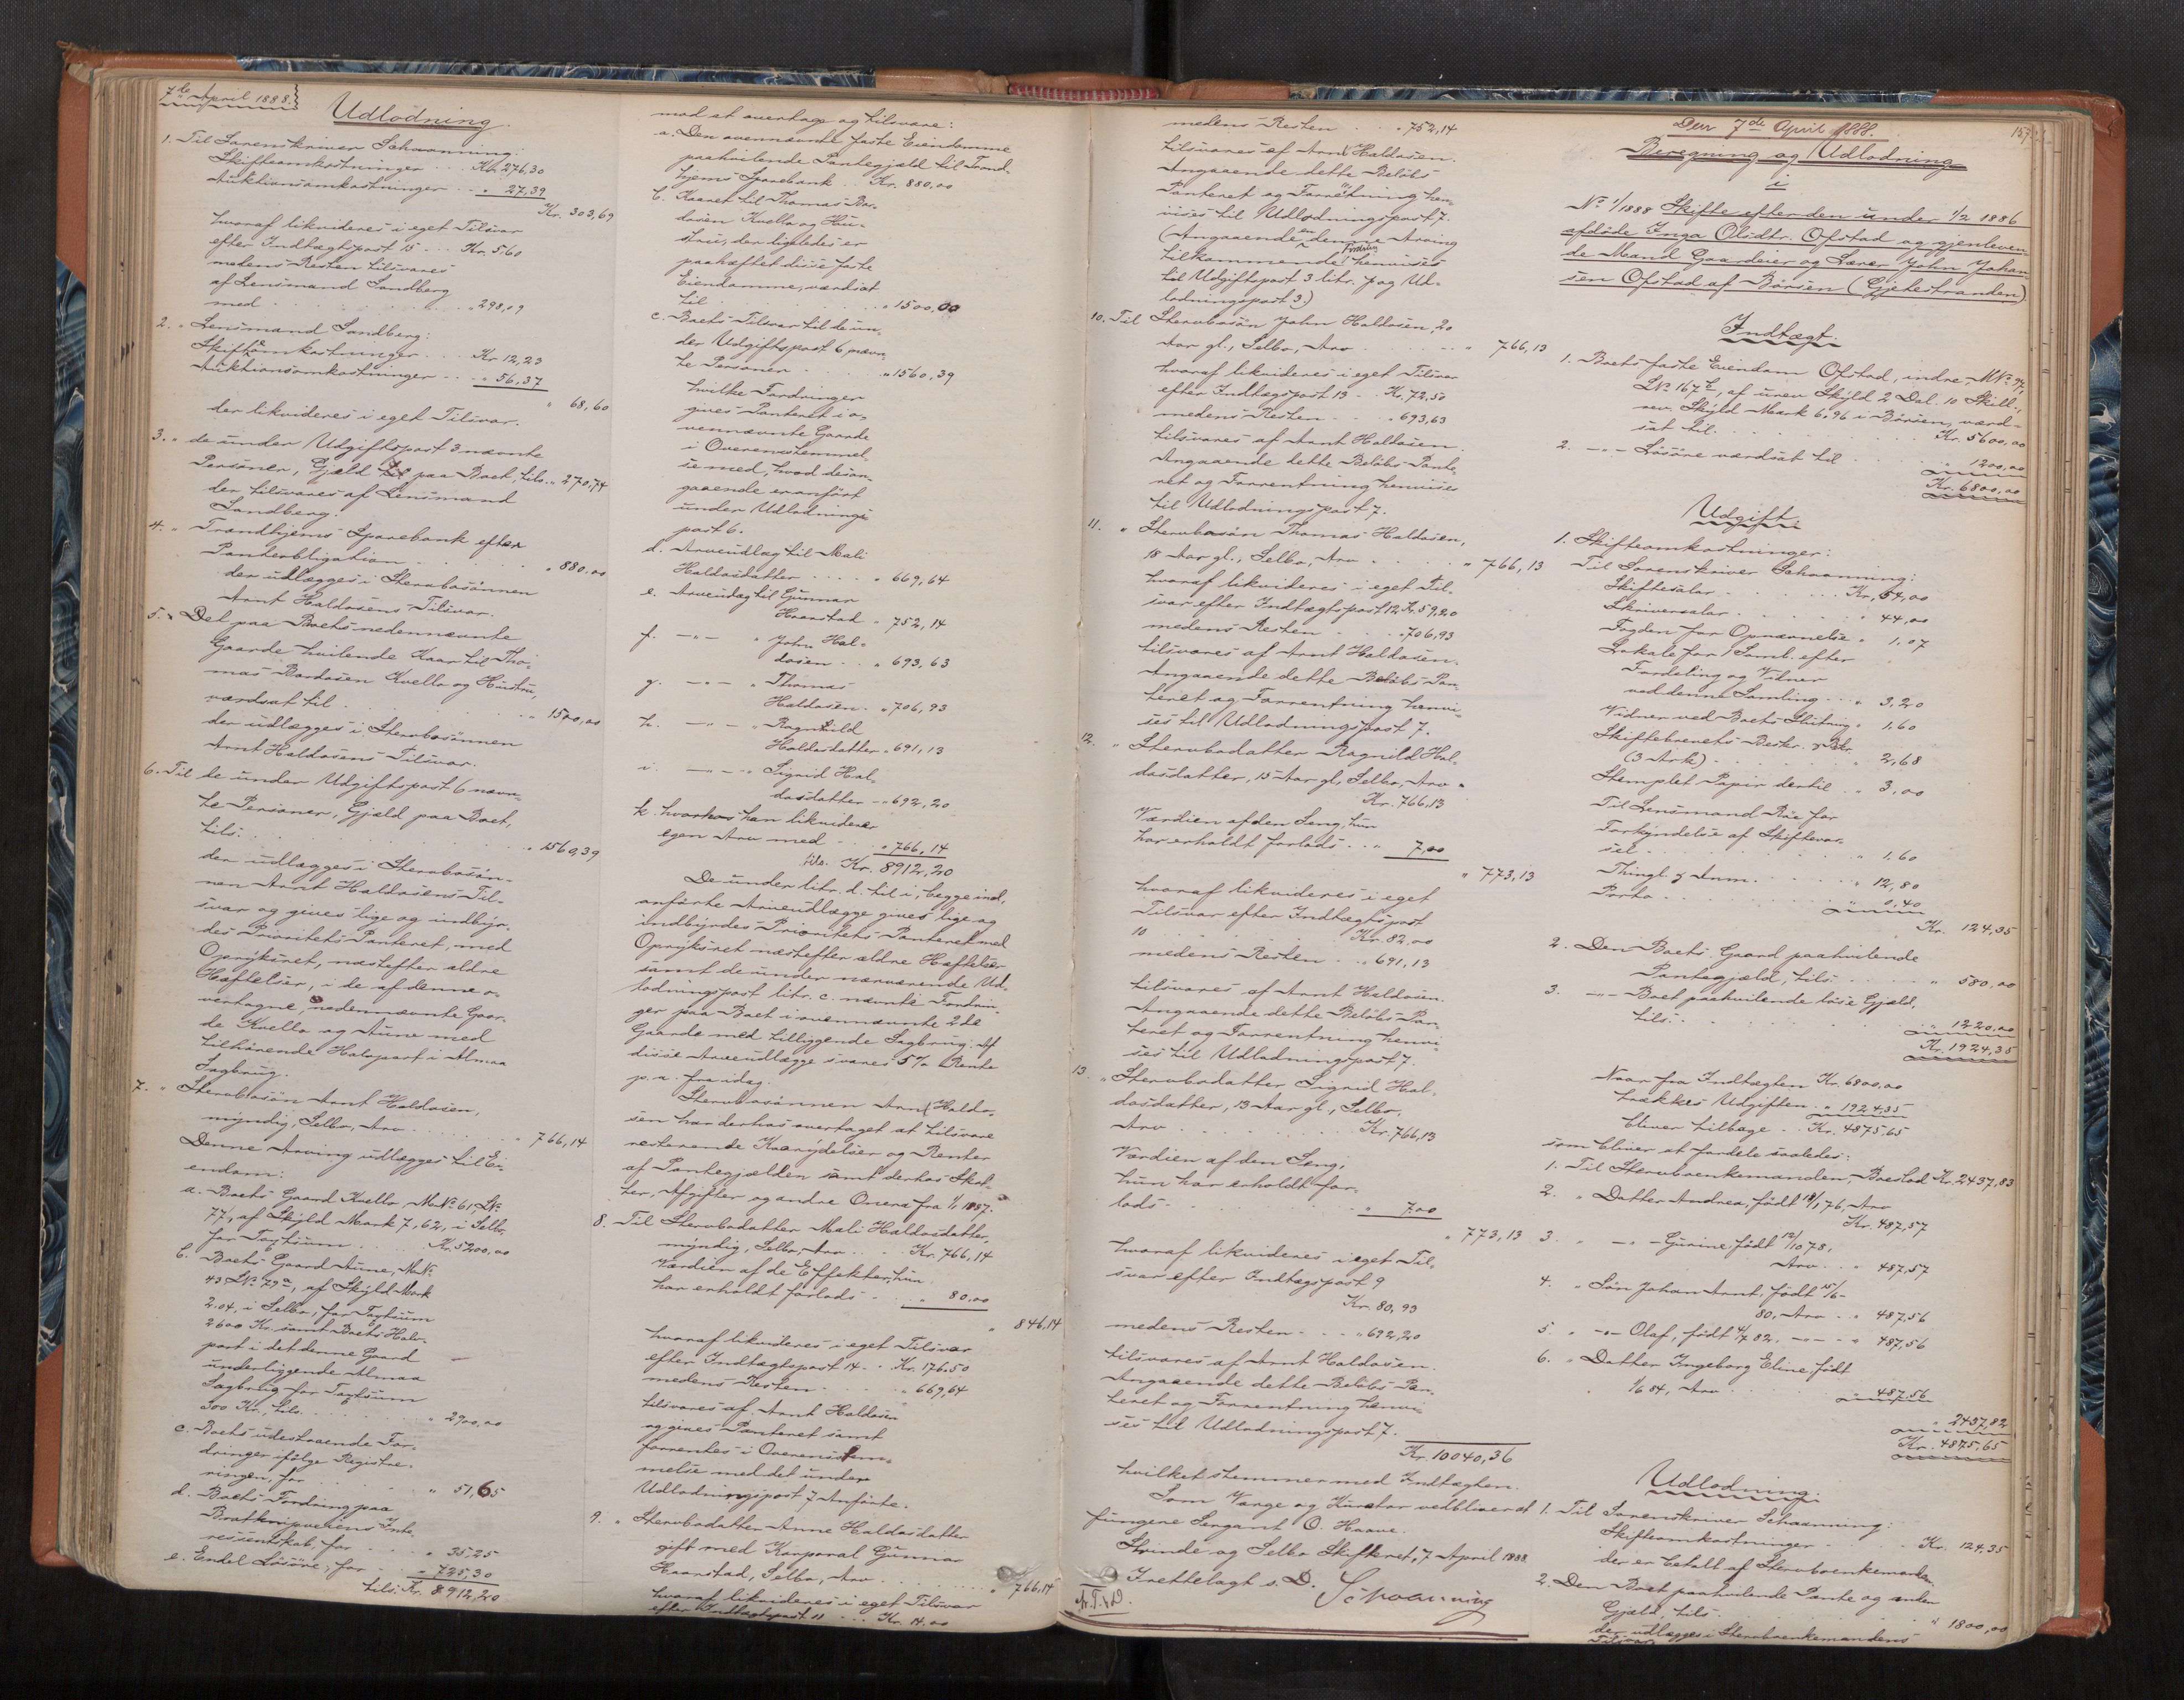 7de April 1888.
Udlodning.
1. Til Sorenskriver Schwanning:
Skifteomkostninger . . . Kr. 276,30
Auktionsomkostninger . . . " 27,39
Kr. 303,69
hvoraf likvideres i eget Tilsvar
efter Indtægtspost 15 . . . Kr. 5,60
medens Resten tilsvares
af Lensmand Sandberg
med . . . " 298,09
2. " Lensmand Sandberg:
Skifteomkostninger . . . Kr 12,23
Auktionsomkostninger . . . " 56,37
" 68,60
der likvideres i eget Tilsvar.
3. " de under Udgiftspost 3 nævnte
Personer, Gjæld til paa Boet, tils. " 270,74
der tilsvares af Lensmand
Sandberg.
4. " Trondhjems Sparebank efter
Panteobligation . . . " 880,00
der udlægges i Stervbosønnen
Arnt Haldosens Tilsvar.
5. " Det paa Boets nedennævnte
Gaarde hvilende Kaar til Tho-
mas Bardosen Kvello og Hustru,
værdsat til . . . " 1500,00
der udlægges i Stervbosønnen
Arnt Haldosens Tilsvar.
6. Til de under Udgiftspost 6 nævn-
te Personer, Gjæld paa Boet,
tils: . . . " 1560,39
der udlægges i Stervbosøn-
nen Arnt Haldosens Til-
svar og gives lige og indbyr-
des Prioritets Panteret, med
Opryksret, næstefter ældre
Hæftelser, i de af denne o-
vertagne, nedennævnte Gaar-
de Kvello og Aune med
tilhørende Halvpart i Almaa
Sagbrug.
7. " Stervbosøn Arnt Haldosen,
myndig, Selbo, Arv . . . " 766,14
Denne Arving udlægges til Ei-
endom:
a. Boets Gaard Kvello, M.No 61, L.No
77, af Skyld Mark 7,62, i Selbo,
for Taxtsum . . . Kr. 5200,00
b. Boets Gaard Aune, M.No
43 L.No 79a, af Skyld Mark
2.04, i Selbo, for Taxtsum
2600 Kr. samt Boets Halv-
part i det denne Gaard
underliggende Almaa
Sagbrug for Taxtsum
300 Kr., tils. . . . " 2900,00
c. Boets udestaaende For-
dringer ifølge Registre-
ringen, for . . . " 51,65
d. Boets Fordring paa
Interessentskab, for . . . " 35,25
e. Endel Løsøre, for . . . " 725,30
tils. Kr. 8912,20
mod at overtage og tilsvare:
a. Den ovennævnte faste Eiendomme
paahvilende Pantegjæld til Trond-
hjems Sparebank . . Kr. 880,00
b. Kaaret til Thomas Bar-
dosen Kvello og Hu-
stru, der ligeledes er
paaheftet disse faste
Eiendomme, værdsat
til . . . " 1500,00
c. Boets Tilsvar til de un-
der Udgiftspost 6 nævn-
te Personer . . . " 1560,39
hvilke Fordringer
gives Panteret i o-
vennævnte Gaarde
i Overensstemmel-
se med, hvad desan-
gaaende er anført
under Udlodnings-
post 6.
d. Arveudlæg til Mali
Haldosdatter . . . " 669,64
e. Arveudlæg til Gunnar
Haarstad " 752,14
f. — " — " John Hal-
dosen . . " 693,63
g. — " — " Thomas
Haldosen . " 706,93
h. — " — " Ragnhild
Haldosdatter " 691,13
i. — " — " Sigrid Hal-
dosdatter — " 692,20
k. hvorhos han likviderer
egen Arv med . . . " 766,14
tils. Kr. 8912,20
De under litr. d. til i, begge incl.,
anførte Arveudlægge gives lige og
indbyrdes Prioritets Panteret med
Opryksret næstefter ældre Hæftelser
samt de under nærværende Ud-
lodningspost litr. c. nævnte Fordrin-
ger paa Boet i ovennævnte 2de
Gaarde med tilliggende Sagbrug. Af
disse Arveudlægge svares 5 % Rente
p. a. fra idag.
Stervbosønnen Arnt Haldo-
sen har derhos overtaget at tilsvare
resterende Kaarydelser og Renter
af Pantegjælden samt derhos Skat-
ter, Afgifter og andre Onera fra 1/1 1887.
8. Til Stervbodatter Mali Haldosdatter,
myndig, Selbo, Arv . . . Kr. 766,14
Værdien af de Effekter, hun
har erholdt forlods . . . " 80,00
" 846,14
hvoraf likvideres i eget Tilsvar
efter Indtægtspost 14 . . Kr. 176.50
medens Resten . . . " 669,64
tilsvares af Arnt Haldosen
og gives Panteret samt
forrentes i Overensstem-
melse med det under
Udlodningspost 7 Anførte.
9. " Stervbodatter Anne Haldosdatter
gift med Korporal Gunnar
Haarstad, Selbo, Arv . . . " 766,14
hvoraf likvideres i eget Tilsvar
efter Indtægtspost 11 . . . Kr. 14.00
medens Resten . . . " 752,14
tilsvares af Arnt Haldosen.
Angaaende dette Beløbs
Panteret og Forrentning hen-
vises til Udlodningspost 7.
(Angaaende en denne Arving
tilkommende Fordring henvises
til Udgiftspost 3 litr. p og Ud-
lodningspost 3.)
10. Til Stervbosøn John Haldosen, 20
Aar gl., Selbo, Arv . . . " 766,13
hvoraf likvideres i eget Tilsvar
efter Indtægtspost 13 . . Kr. 72,50
medens Resten . . . " 693,63
tilsvares af Arnt Haldosen.
Angaaende dette Beløbs Pante-
ret og Forrentning henvises
til Udlodningspost 7.
11. " Stervbosøn Thomas Haldosen,
18 Aar gl., Selbo, Arv . . . " 766,13
hvoraf likvideres i eget Til-
svar efter Indtægtspost 12 Kr. 59,20
medens Resten . . . " 706,93
tilsvares af Arnt Haldosen.
Angaaende dette Beløbs Pan-
teret og Forrentning henvi-
ses til Udlodningspost 7.
12. " Stervbodatter Ragnild Hal-
dosdatter, 15 Aar gl., Selbo, Arv "
Kr. 766,13
Værdien af den Seng, hun
har erholdt forlods . . " 7,00
" 773,13
hvoraf likvideres i eget
Tilsvar efter Indtægtspost
10 . . . Kr. 82,00
medens Resten . . " 691,13
tilsvares af Arnt Haldosen.
Angaaende dette Beløbs Pan-
teret og Forrentning henvi-
ses til Udlodningspost 7.
13. " Stervbodatter Sigrid Hal-
dosdatter, 13 Aar gl., Selbo,
Arv . . . Kr. 766,13
Værdien af den Seng,
hun har erholdt for-
lods . . . " 7,00
" 773,13
hvoraf likvideres i eget Til-
svar efter Indtægspost 9
Kr. 80,93
medens Resten . . . " 692,20
tilsvares af Arnt Haldosen.
Angaaende dette Beløbs Pan-
teret og Forrentning henvi-
ses til Udlodningspost 7.
Kr. 10040,36
hvilket stemmer med Indtægten.
Som Værge og Kurator vedbliver at
fungere Sergant O. Haave.
Strinde og Selbo Skifteret, 7 April 1888.
Irettelagt s. D. Schwanning
157.
Den 7de April 1888.
Beregning og Udlodning
i
No 1/1888 Skifte efter den under 1/2 1886
afdøde Inga Olsdtr. Ofstad og gjenleven-
de Mand Gaardeier og Lærer John Johan-
sen Ofstad af Børsen (Gjetestranden)
Indtægt.
1. Boets faste Eiendom Ofstad, indre, M.No 97,
L.No 167b, af urev. Skyld 2 Dal. 10 Skill.,
rev. Skyld Mark 6.96 i Børsen, værd-
sat til . . . Kr. 5600,00
2. — " — Løsøre værdsat til . . . " 1200,00
Kr. 6800,00
Udgift.
1. Skifteomkostninger:
Til Sorenskriver Schwanning:
Skiftesalær . . . Kr. 54,00
Skriversalær . . . " 44,00
Fogden for Opnævnelse " 1,07
Lokale for 1 Saml. efter
Fordeling og Vidner
ved denne Samling . . . " 3,20
Vidner ved Boets Slutning " 1,60
Skiftebrevets Beskr. &
(3 Ark) . . . " 2,68
Stemplet Papir dertil . . " 3,00
Til Lensmand Røe for
Forkyndelse af Skiftevar-
sel . . . " 1,60
Thingl. & Anm. . . . " 12,80
Porto . . . " 0,40
Kr. 124,35
2. Den Boets Gaard paahvilende
Pantegjæld, tils. . . . " 580,00
3. — " — Boet paahvilende løse Gjæld,
tils: . . . " 1220,00
Kr. 1924,35
Naar fra Indtægten Kr. 6800,00
trækkes Udgiften . " 1924,35
bliver tilbage . . Kr. 4875,65
som bliver at fordele saaledes:
1. Til Stervboenkemanden, Boeslod Kr. 2437,83
2. " Datter Andrea, født 18/1 76, Arv
Kr. 487,57
3. " — " — Gurine, født 12/10 78,
Arv . . " 487,57
4. " Søn Johan Arnt, født 15/6 -
80, Arv . . " 487,56
5. " — " — Olaf, født 4/7 82, — " — " 487,56
6. " Datter Ingeborg Eline født
1/6 84, Arv . . . " 487,56
" 2437,82
Kr. 4875,65
Udlodning.
1. Til Sorenskriver Schwanning:
Skifteomkostninger . . . Kr. 124,35
der er betalt af Stervboenkemanden.
2. Den Boet paahvilende Pante og anden
Gjæld, tils. . . . " 1800,00
der udlægges i Stervboenkemandens
Tilsvar.